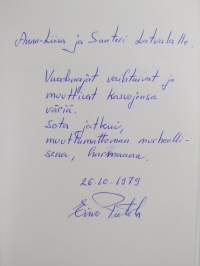 Anna-Liisa ja Santeri Latvalalle
Vuodenajat vaihtuivat ja
muuttivat kasvojensa
väriä.
Sota jatkui,
muuttumattoman murheelli-
sena, harmaana.
26.10.1979
Eino Pietola